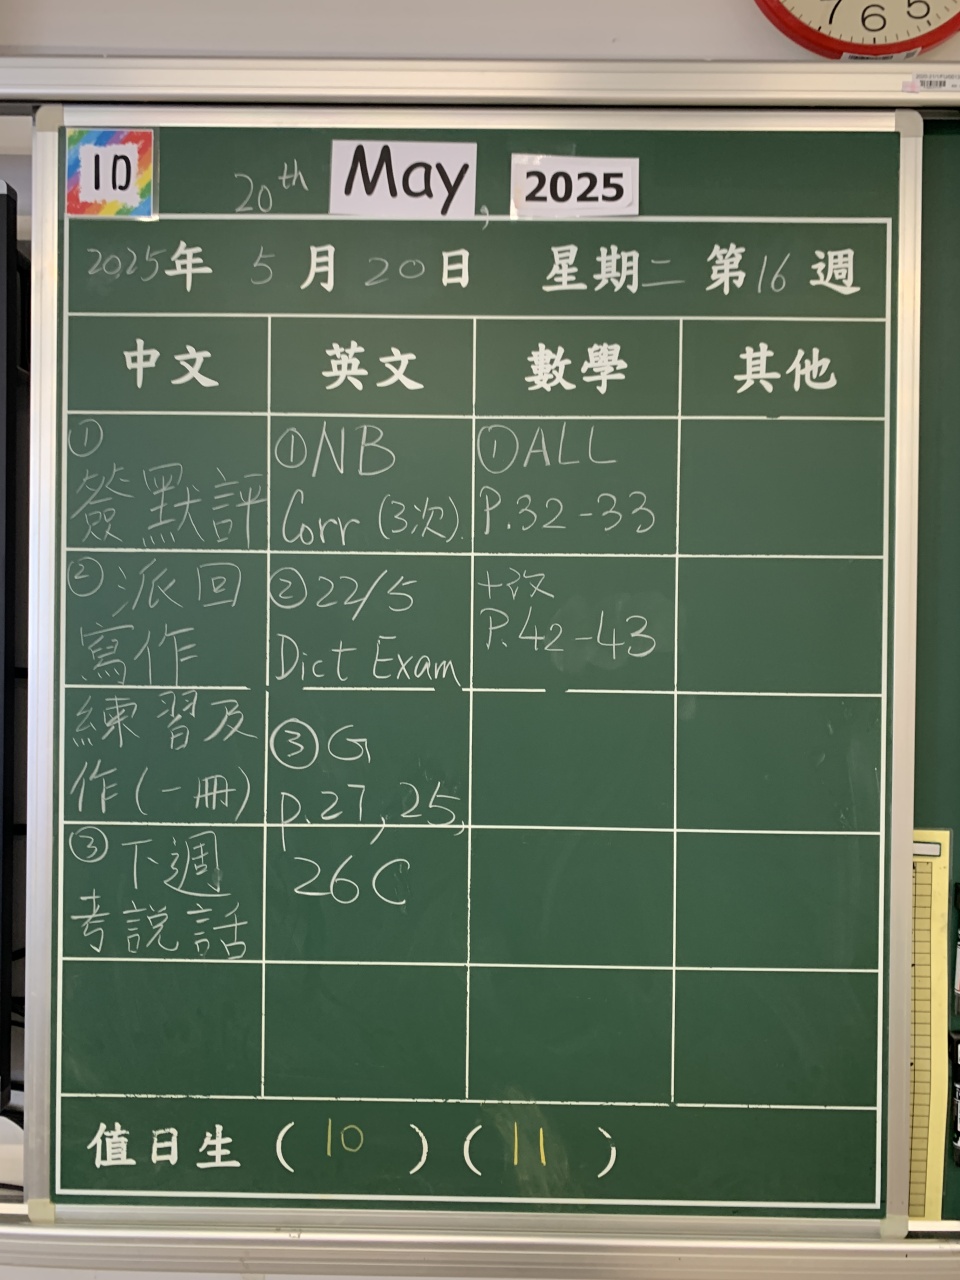 7 6 5
1D
20th May, 2025
2025年 5月20日 星期二 第16週
中文 英文 數學 其他
①
簽默評
②派回
寫作
練習及
作(一冊)
③下週
考説話
①NB
Corr (3次)
②22/5
Dict Exam
③G
p.27, 25,
26C
①ALL
P.32-33
+改
P.42-43
值日生 ( 10 ) ( 11 )